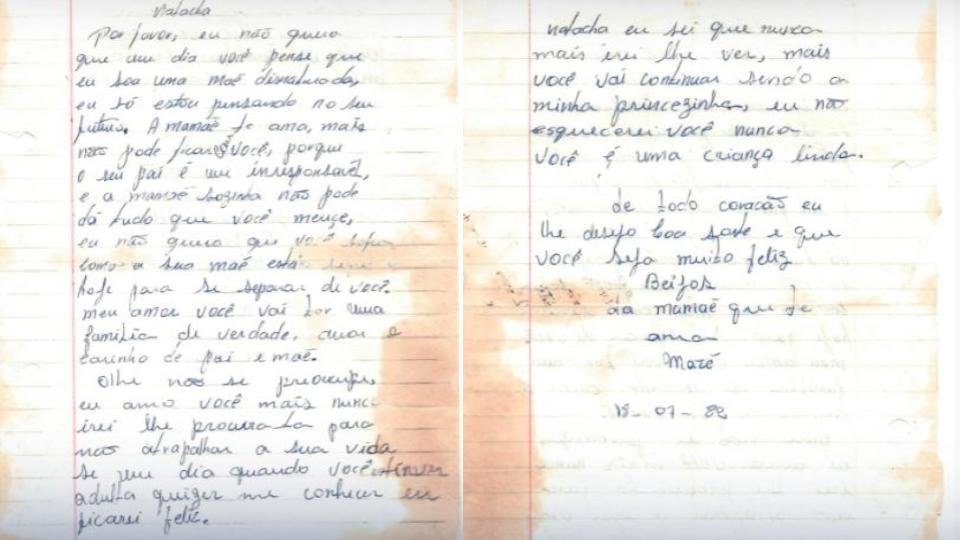 Natacha
Por favor, eu não quero
que um dia você pense que
eu sou uma mãe desnaturada,
eu só estou pensando no seu
futuro. A mamãe te ama, mais
não pode ficar você, porque
o seu pai é um irresponsável,
e a mamãe sozinha não pode
dá tudo que você merece,
eu não quero que você sofra
como a sua mãe está
hoje para se separar de você.
meu amor você vai ter uma
família de verdade, amor e
carinho de pai e mãe.
Olhe não se preocupe,
eu amo você mais nunca
irei lhe procurar para
não atrapalhar a sua vida
se um dia quando você
adulta quizer me conhecer eu
ficarei feliz.
natacha eu sei que nunca
mais irei lhe ver, mais
você vai continuar sendo a
minha princezinha, eu não
esquecerei você nunca
você é uma criança linda.
de todo coração eu
lhe desejo boa sorte e que
você seja muito feliz
Beijos
da mamãe que te
ama
Mazé
07-88